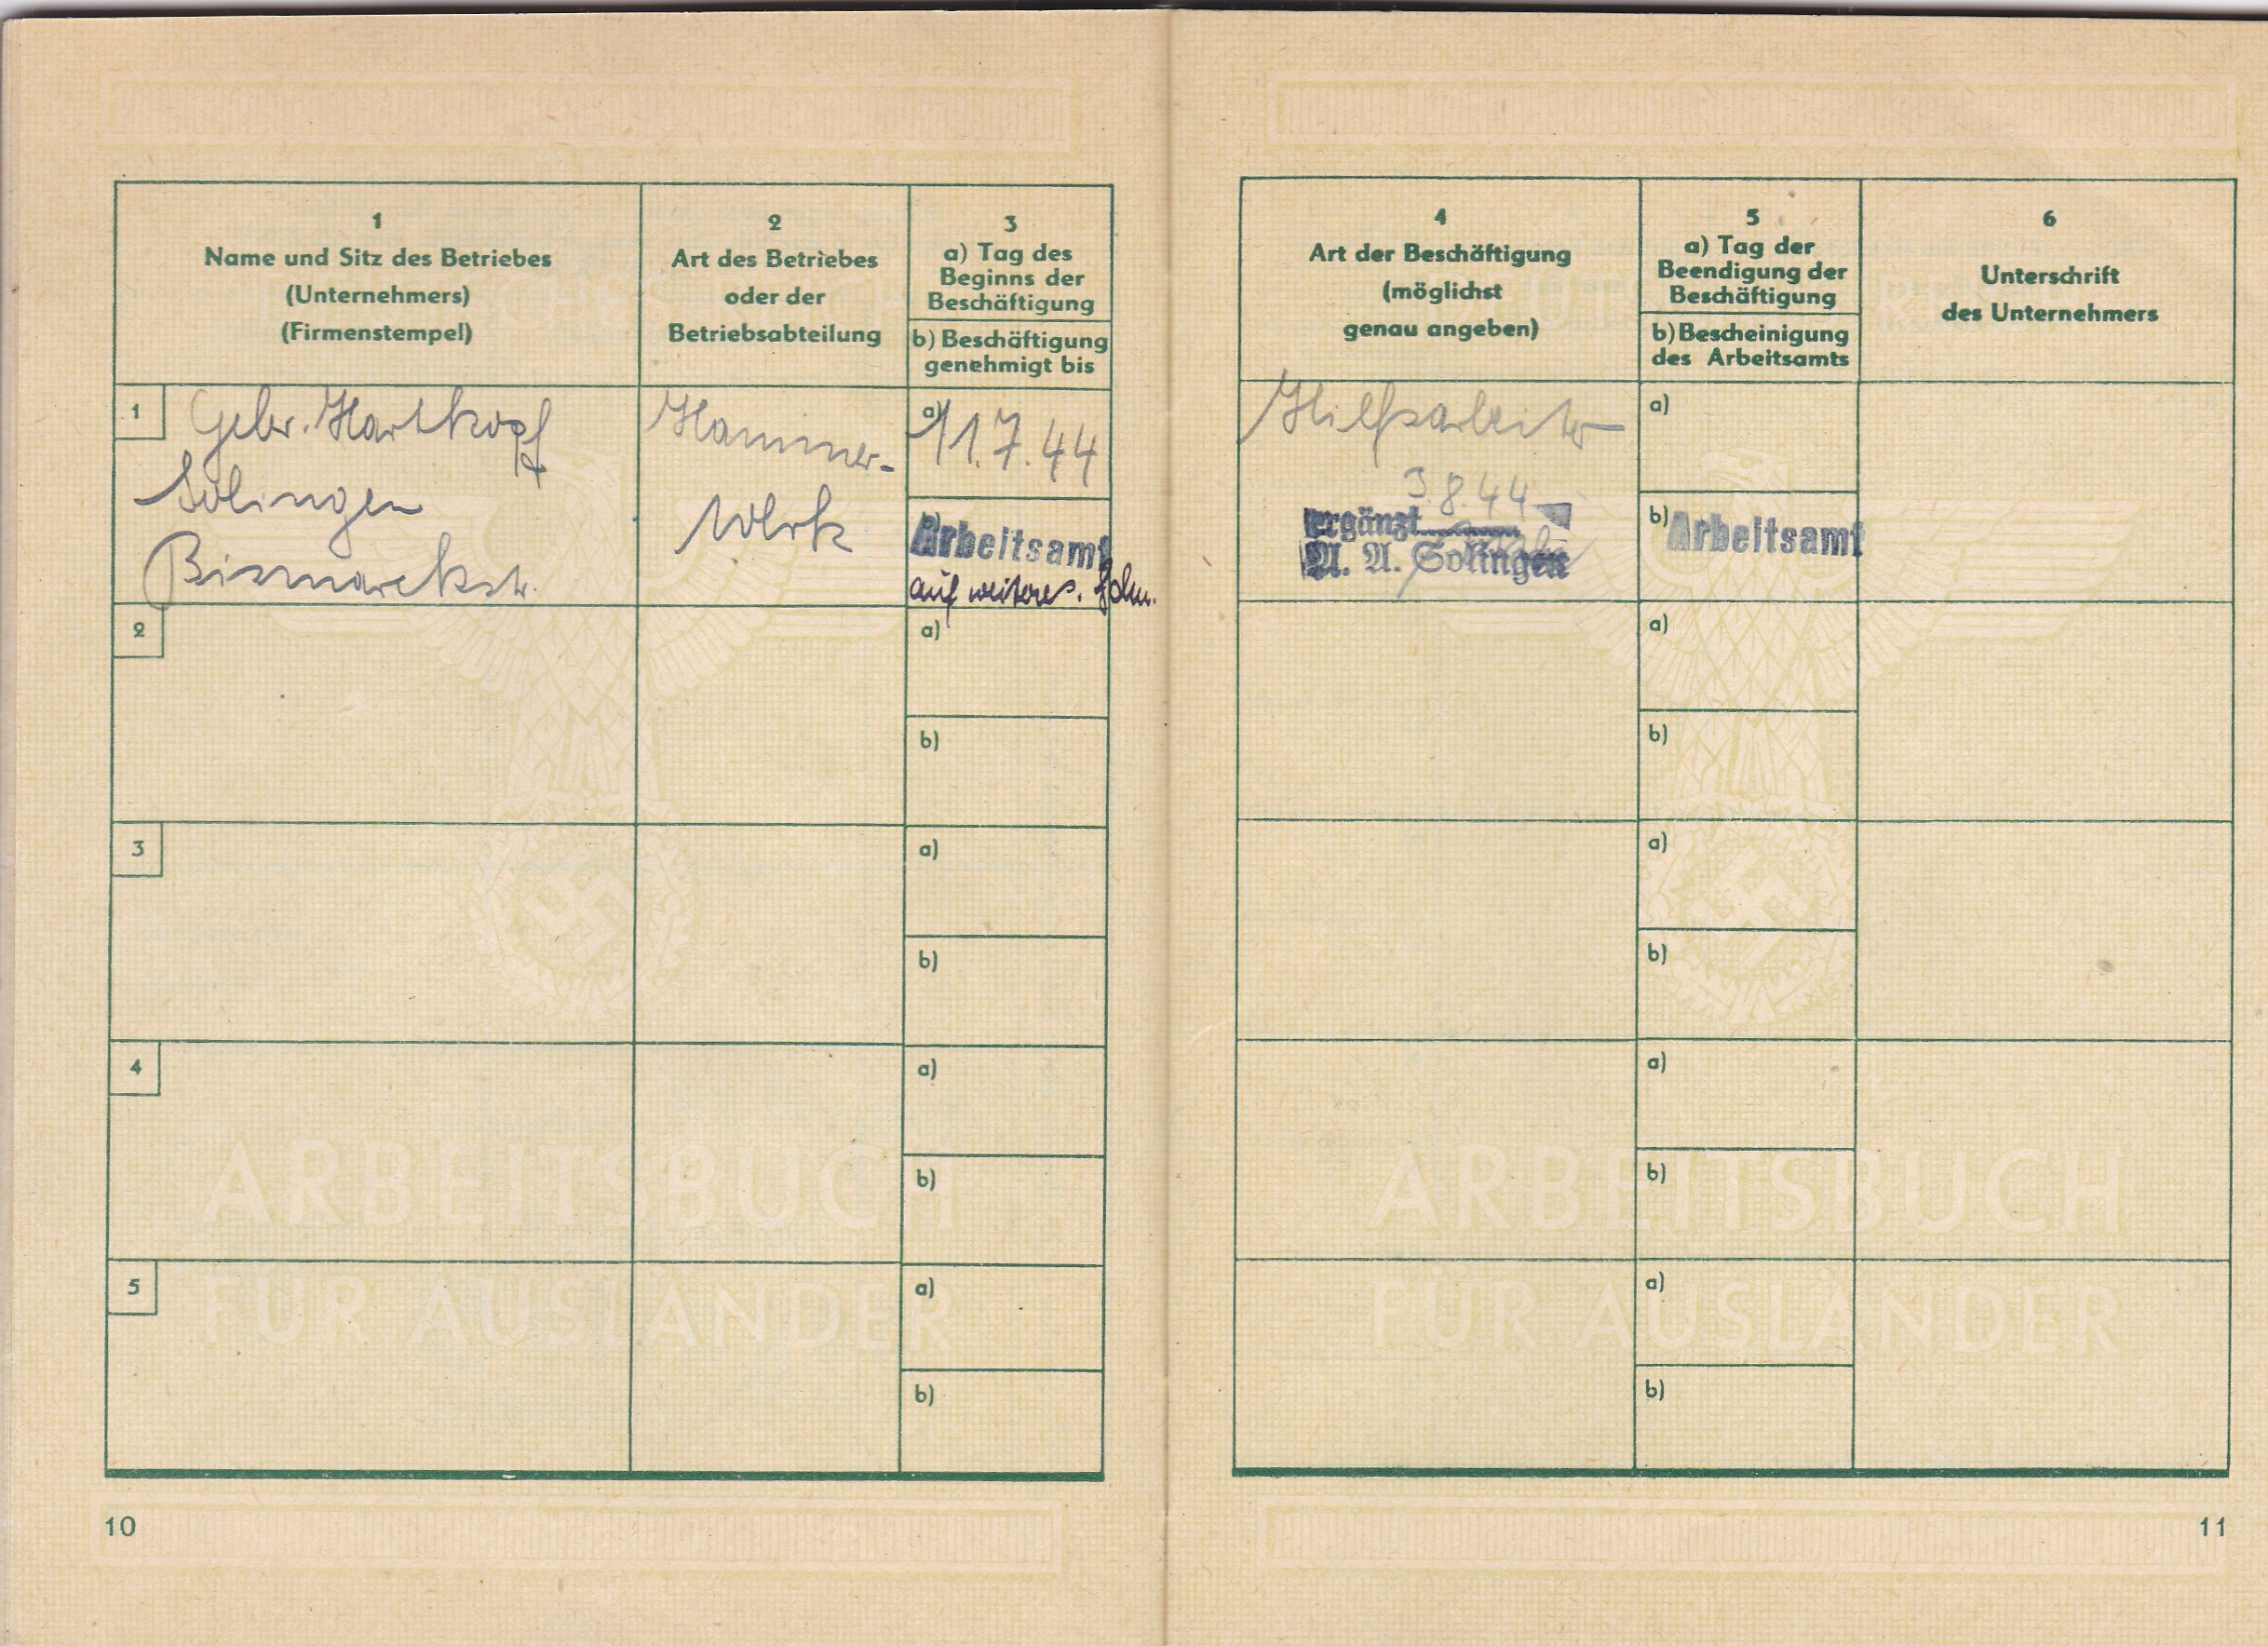 1
Name und Sitz des Betriebes
(Unternehmers)
(Firmenstempel)
2
Art des Betriebes
oder der
Betriebsabteilung
3
a) Tag des
Beginns der
Beschäftigung
b) Beschäftigung
genehmigt bis
1
Gebr. Hartkopf
Solingen
Bismarckstr.
Hammer-
Werk
a) 11.7.44
Arbeitsamt
auf weiteres.
2
a)
b)
3
a)
b)
4
a)
b)
5
a)
b)
ARBEITSBUCH
FÜR AUSLÄNDER
10
4
Art der Beschäftigung
(möglichst
genau angeben)
5
a) Tag der
Beendigung der
Beschäftigung
b) Bescheinigung
des Arbeitsamts
6
Unterschrift
des Unternehmers
Hilfsarbeiter
3.8.44
ergänzt
A. A. Solingen
a)
b) Arbeitsamt
a)
b)
a)
b)
a)
b)
a)
b)
ARBEITSBUCH
FÜR AUSLÄNDER
11